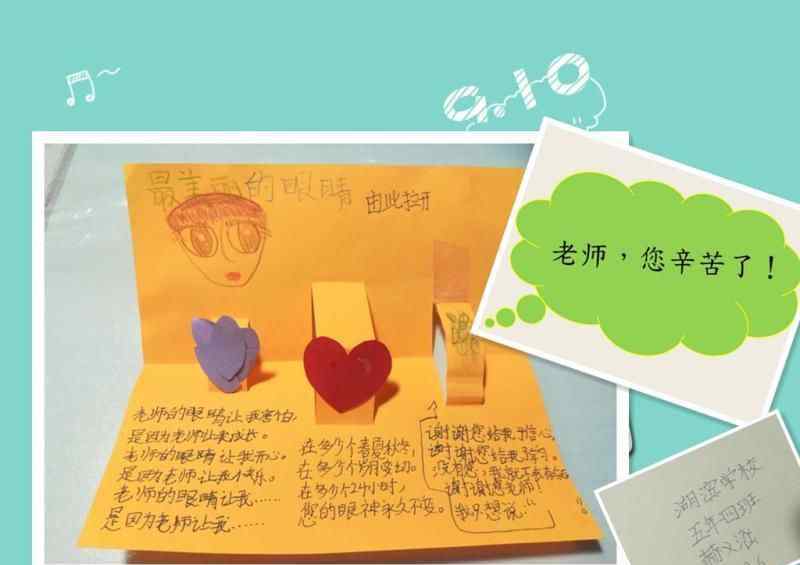 9.10
最美丽的眼睛
由此拉开
老师，您辛苦了！
谢
老师的眼睛让我害怕，
是因为老师让我成长。
老师的眼睛让我开心。
是因为老师让我快乐。
老师的眼睛让我……
是因为老师让我……
在多少个春夏秋冬，
在多少个岁月
在多少个24小时，
您的眼神永久不变。
谢谢您给我予信心，
谢谢您给我
没有您，我就不会
谢谢您老师！
我只想说：“
湖滨学校
五年四班